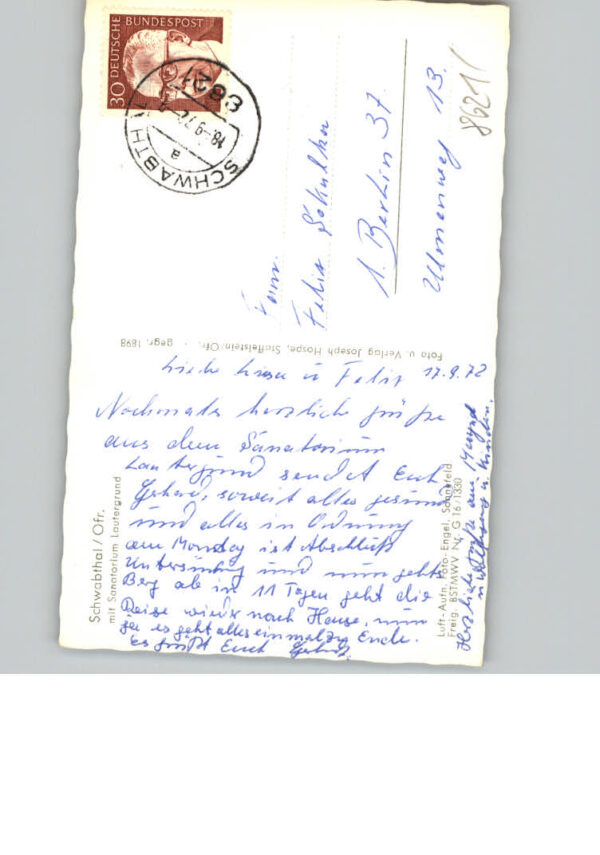 30 DEUTSCHE BUNDESPOST
8621
SCHWABTHAL
a
18.-9.72
8621
Fam.
Felix
1. Berlin 37.
Ulmenweg 13.
Foto u. Verlag Joseph Hospe, Staffelstein/Ofr. · gegr. 1898
Schwabthal / Ofr.
mit Sanatorium Lautergrund
Luft-Aufn. Foto-Engel, Sonnefeld
Freig. BSTMWV Nr. G 16/1330
Liebe u Felix 17.9.72
Nochmals herzliche Grüße
aus dem Sanatorium
Lautergrund sendet Euch
Gerhard, soweit alles gesund
und alles in Ordnung
am Montag ist Abschluß
Untersuchung und nun gehts
Berg ab in 11 Tagen geht die
Reise wieder nach Hause, nun
ja es geht alles einmal zu Ende.
Es grüßt Euch Gerhard.
Herzliche Grüße an
u. Kinder.